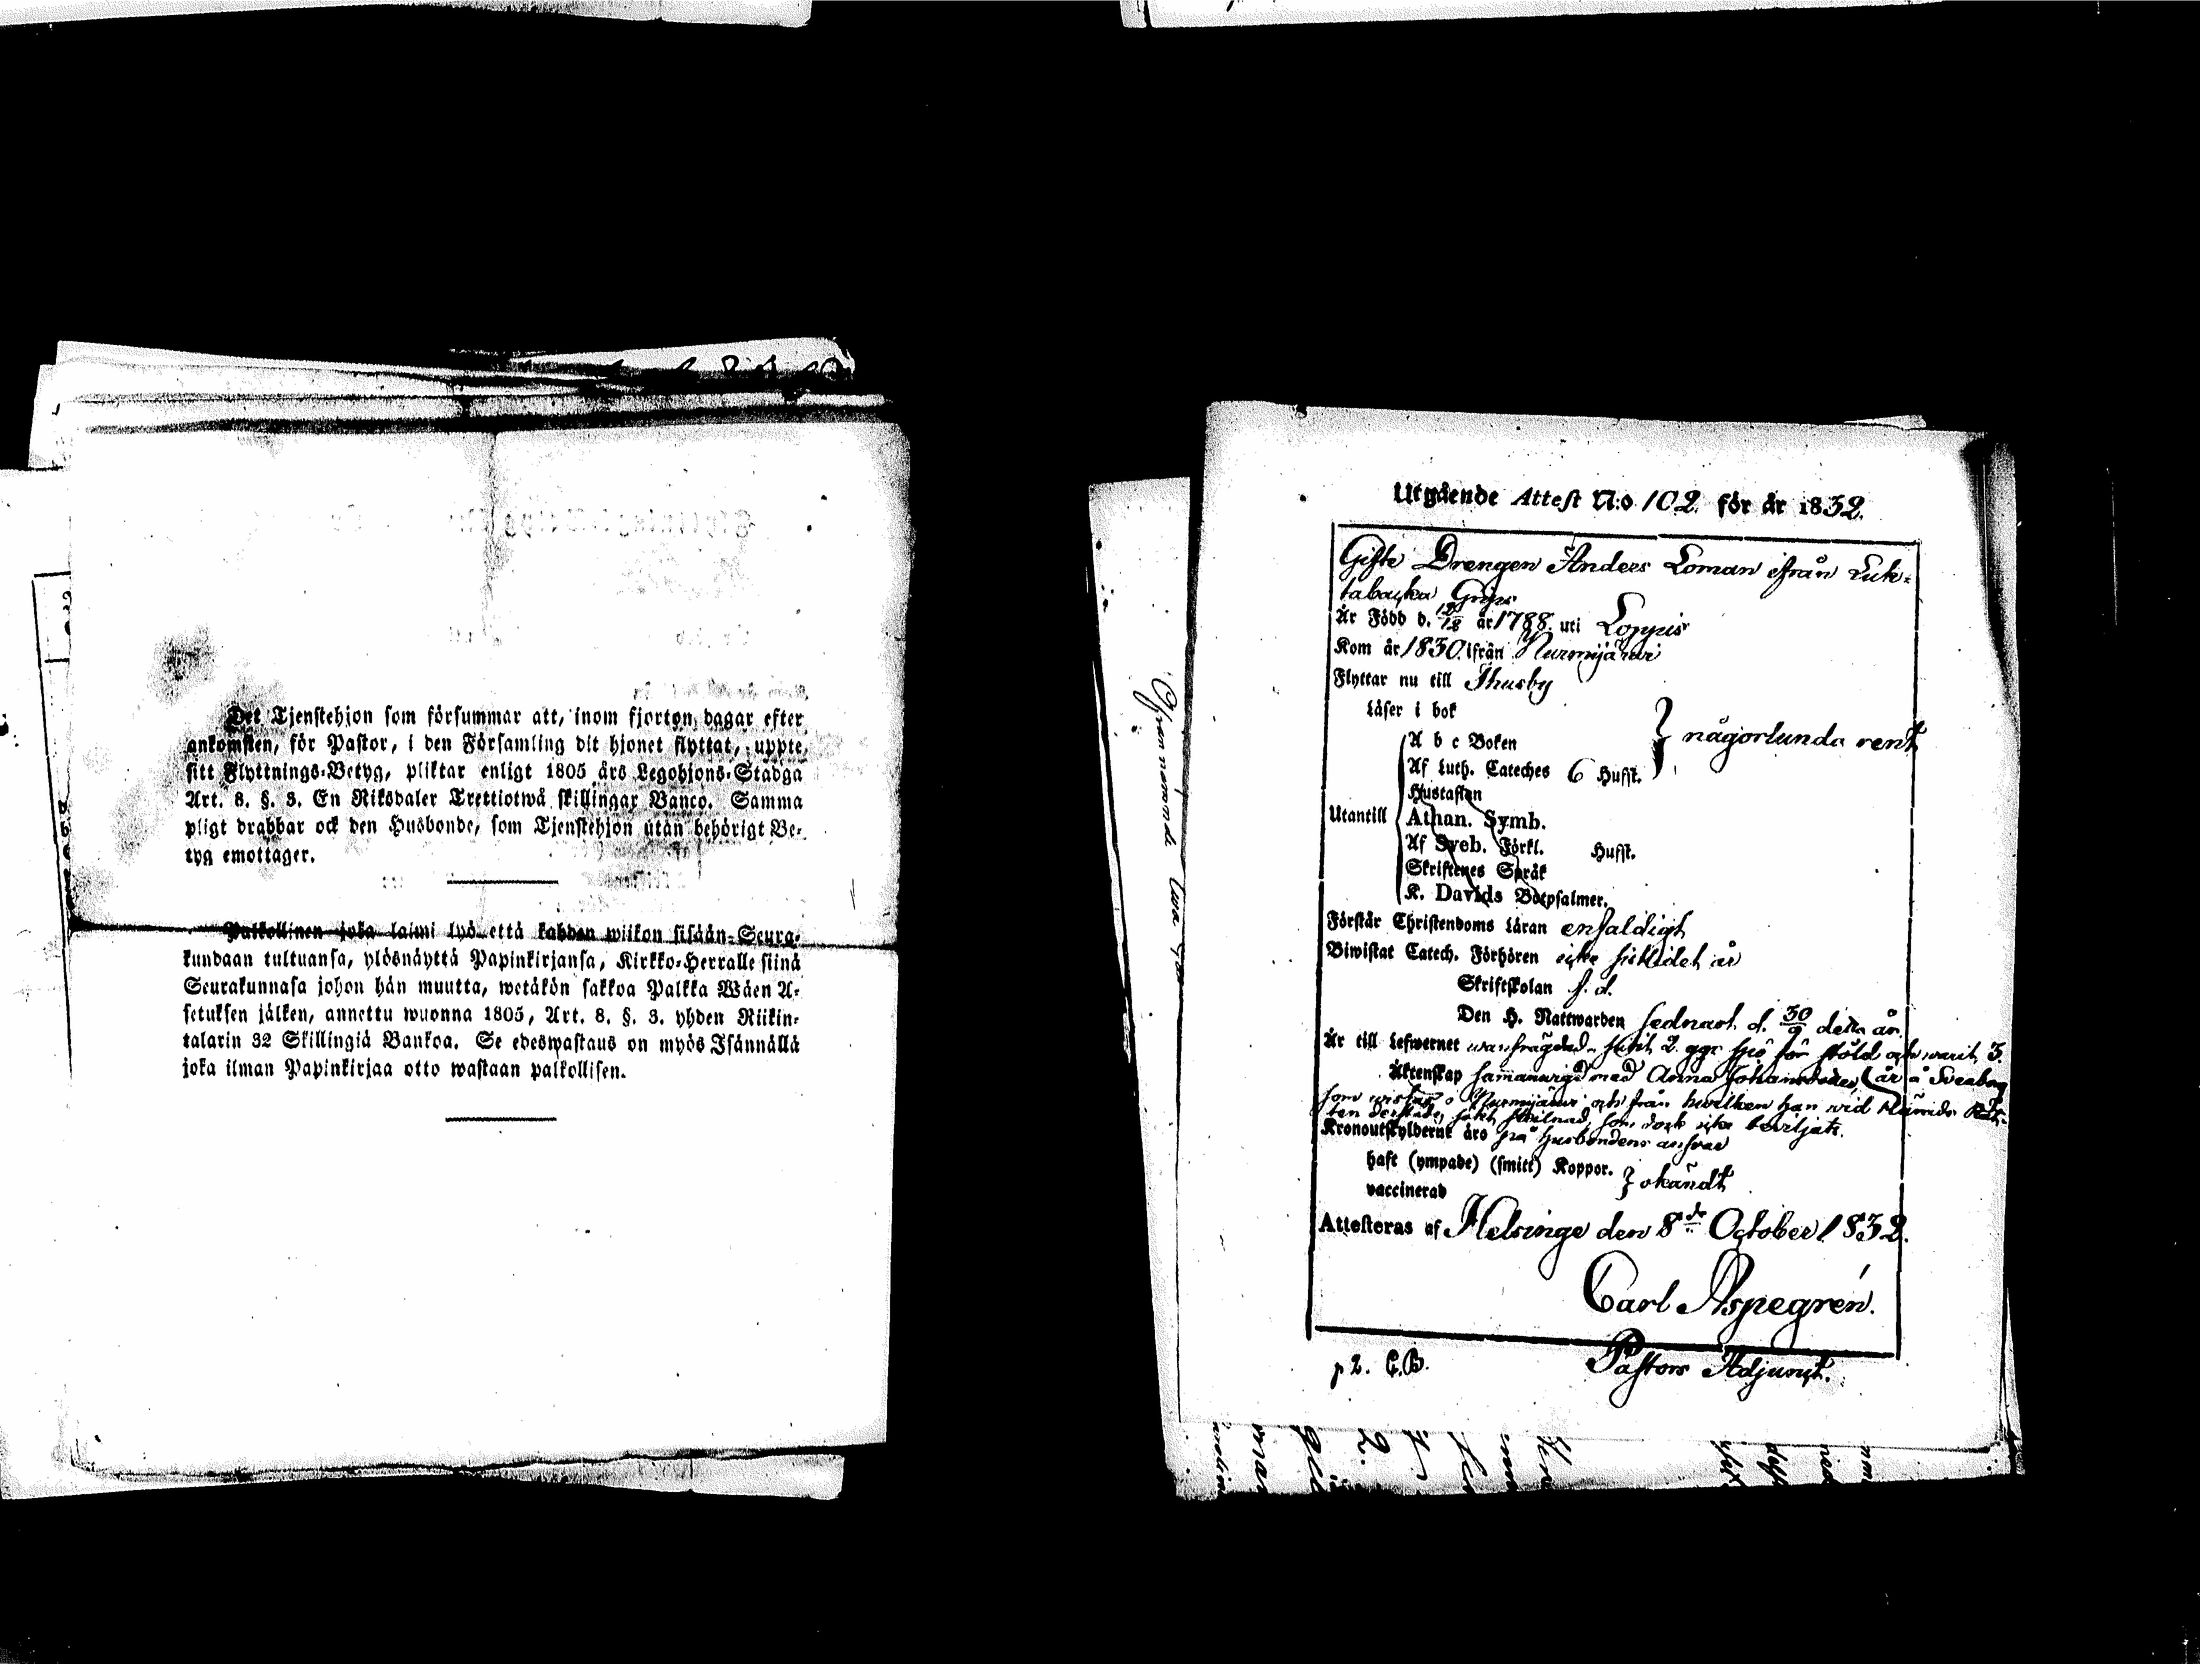 Det Tjenstehjon som försummar att, inom fjorton dagar efter
ankomsten, för Pastor, i den Församling dit hjonet flyttat, uppte
sitt Flyttnings-Betyg, pliktar enligt 1805 års Legohjons-Stadga
Art. 8. §. 3. En Riksdaler Trettiotwå skillingar Banco. Samma
pligt drabbar ock den Husbonde, som Tjenstehjon utan behörigt Be-
tyg emottager.
Palkollinen joka laimi lyö että kahden wiikon sisään Seura-
kundaan tultuansa, ylösnäyttä Papinkirjansa, Kirkko-Herralle siinä
Seurakunnasa johon hän muutta, wetäkön sakkoa Palkka Wäen A-
setuksen jälken, annettu wuonna 1805, Art. 8. §. 3. yhden Riikin-
talarin 32 Skillingiä Bankoa. Se edeswastaus on myös Isännällä
joka ilman Papinkirjaa otto wastaan palkollisen.
Utgående Attest N:o 102 för år 1832.
Gifte Drengen Anders Loman ifrån Luk-
tabacka Grips
Är Född d. 12/12 år 1788. uti Loppis
Kom år 1830. ifrån Nurmijärvi
Flyttar nu till Thusby
Läser i bok
A b c Boken } någorlunda rent
Af Luth. Cateches 6 Husst.
Hustaflan
Utantill Athan. Symb.
Af Sveb. Förkl. Husst.
Skriftenes Språk
K. Davids Botpsalmer.
Förstår Christendoms Läran enfaldigt
Biwistat Catech. Förhören icke sistlidet år
Skriftskolan s. d.
Den H. Nattwarden sednast d. 30/9 detta år
Är till Lefwernet wanfrägdad, sutit 2 ggr för stöld och warit 3
Äktenskap sammanwigd med Anna Johansdotter, (år å Sveaborg
som wistas i Nurmijärvi och från hwilken han wid
sökt skillnad, som dock icke beviljats.
Kronoutskylderne äro på Husbondens answar
haft (ympade) (smitt) Koppor. } okändt
vaccinerad
Attesteras af Helsinge den 8de October 1832.
Carl Aspegrén.
Pastors Adjunct.
p 2. C.B.